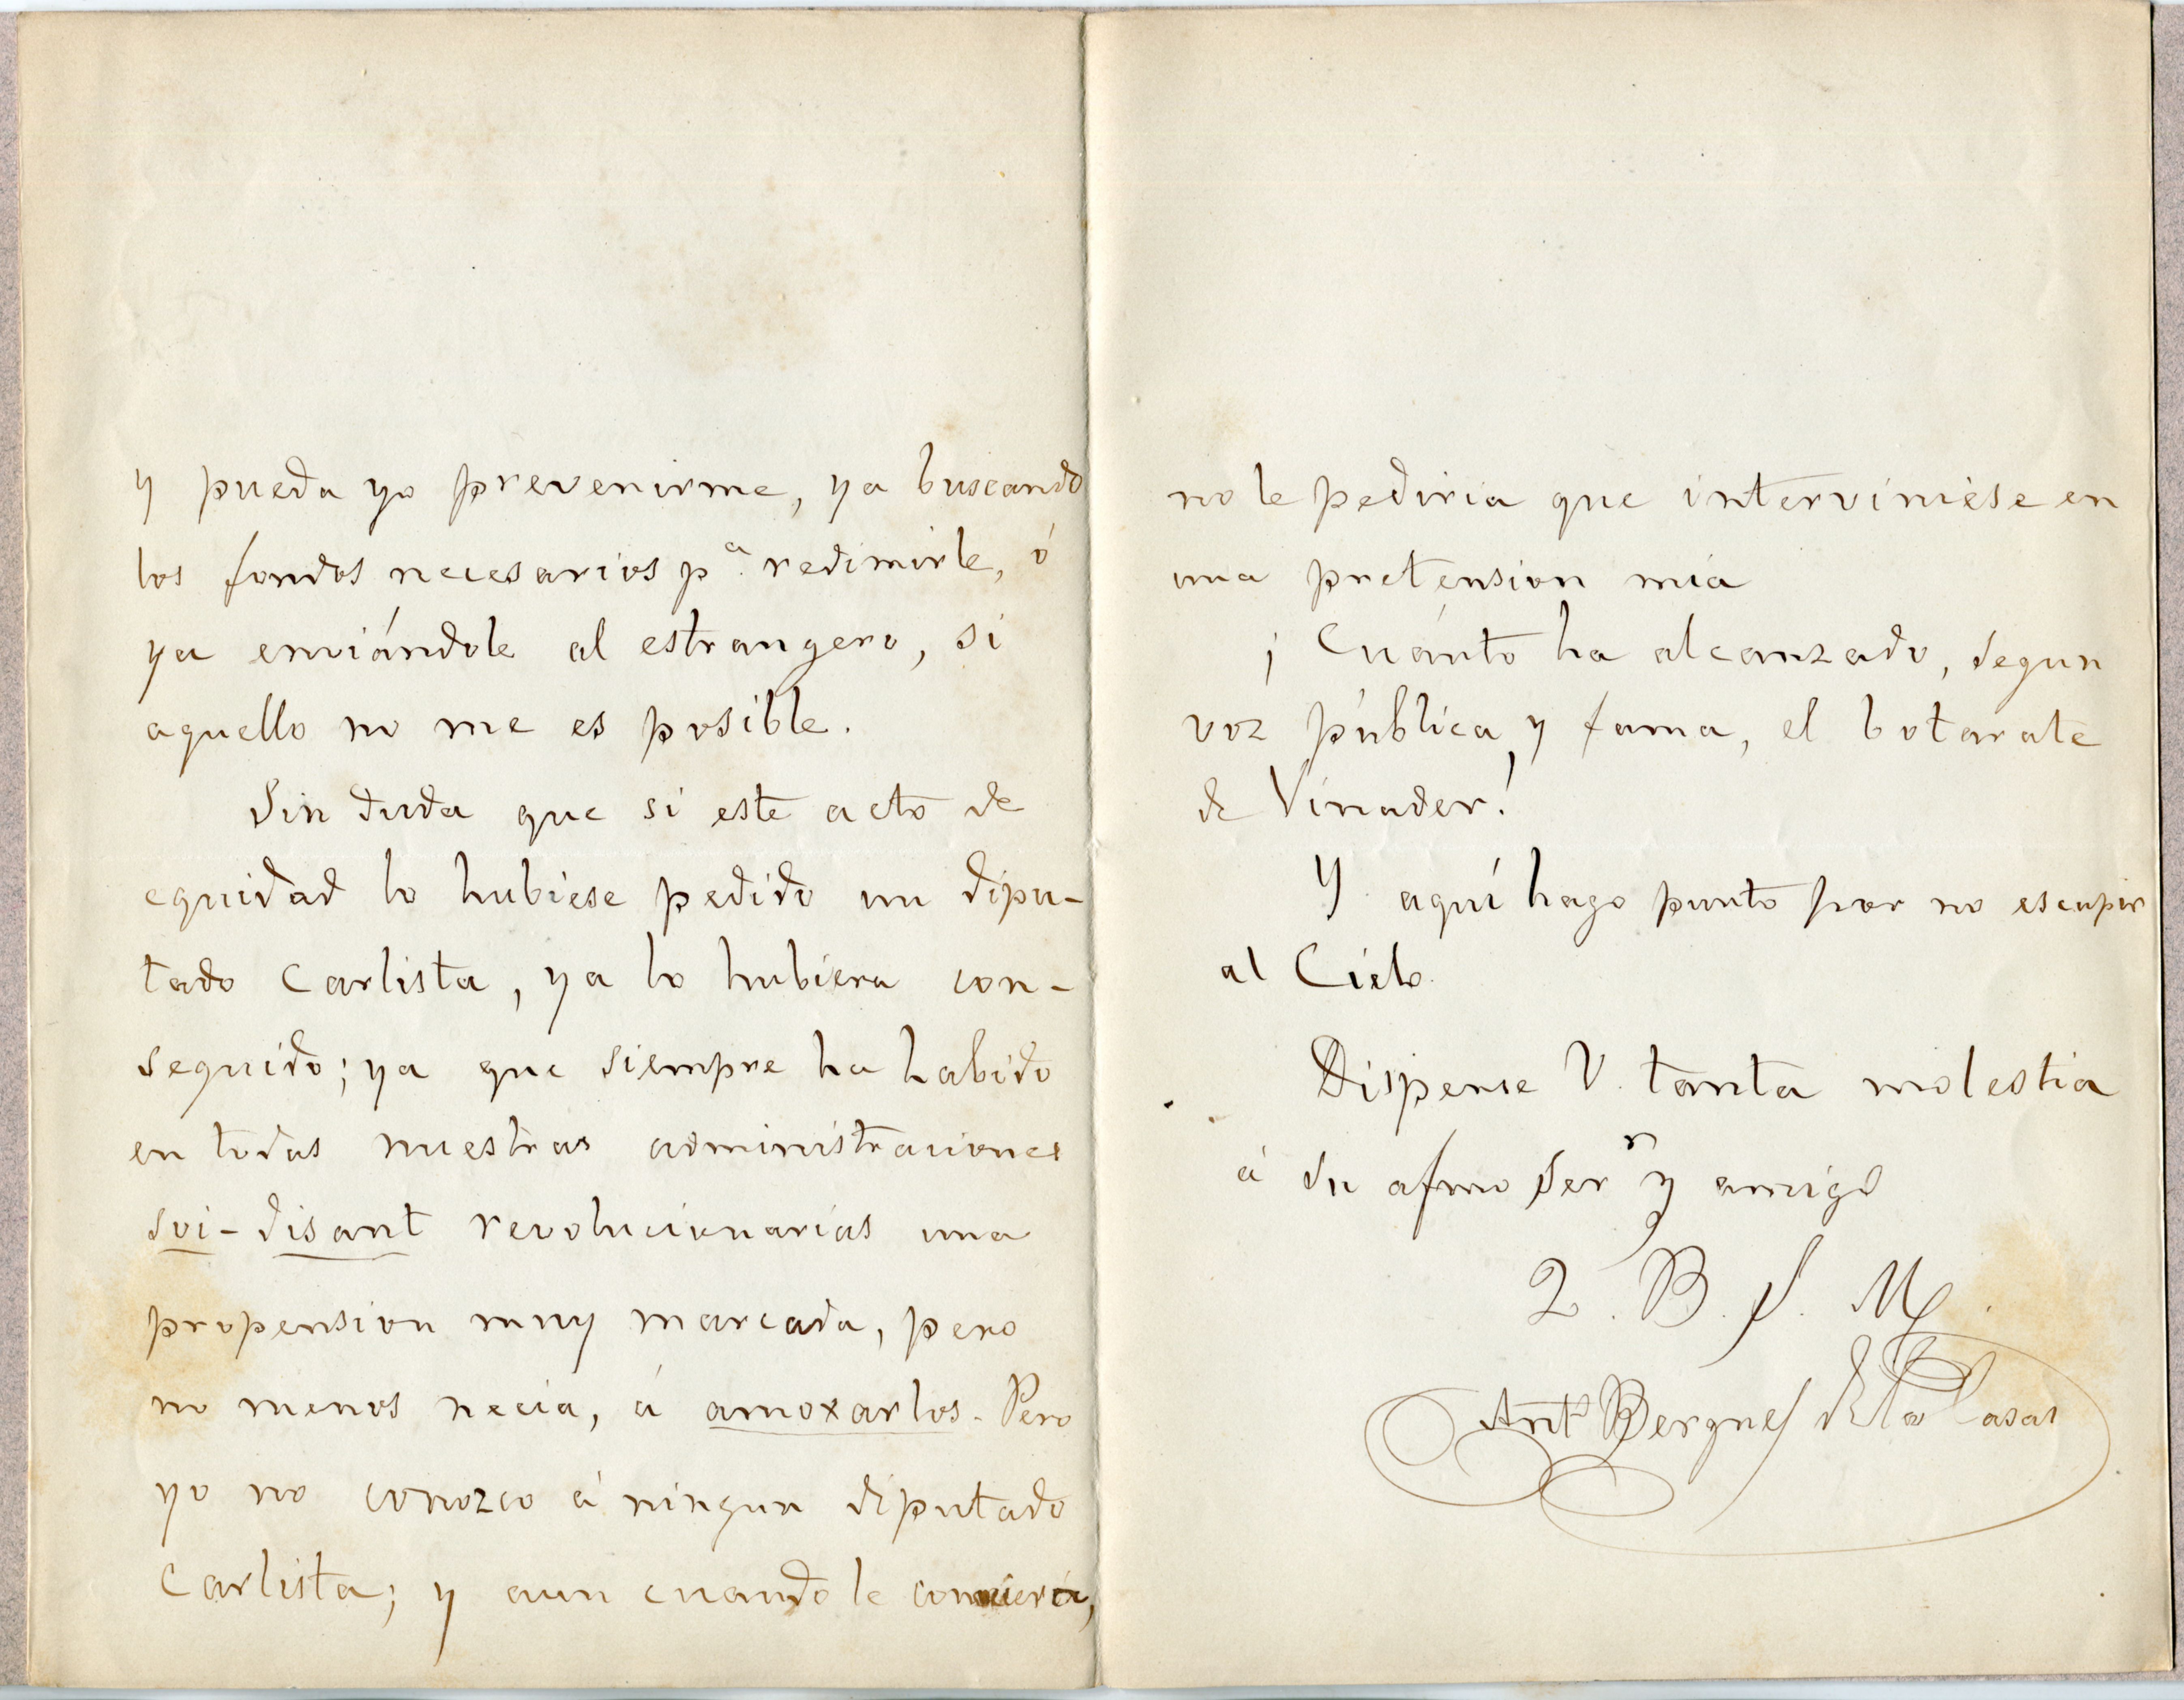 y pueda yo prevenirme, ya buscando
los fondos necesarios pª. redimirle, ó
ya enviándole al estrangero, si
aquello no me es posible.
Sin duda que si este acto de
equidad lo hubiese pedido un dipu-
tado Carlista, ya lo hubiera con-
seguido; ya que siempre ha habido
en todas nuestras administraciones
soi-disant revolucionarias una
propension muy marcada, pero
no menos necia, á amoxarlos. Pero
yo no conozco á ningun diputado
Carlista; y aun cuando le
no le pediria que interviniése en
una pretension mia
¡Cuánto ha alcanzado, segun
voz pública y fama, el botarate
de Vinader!
Y aquí hago punto por no escupir
al Cielo.
Dispense V. tanta molestia
á su afmo Serʳ y amigo
Q. B. S. M.
Antº Bergnes de las Casas